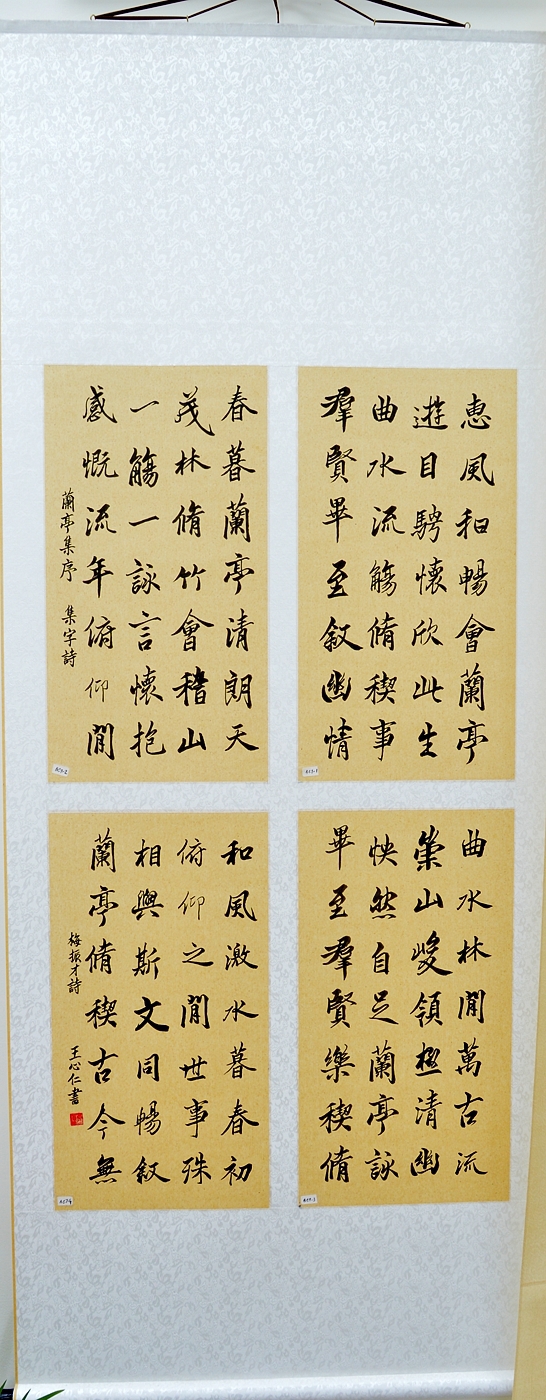 惠風和暢會蘭亭
遊目騁懷欣此生
曲水流觴脩稧事
羣賢畢至敘幽情
春暮蘭亭清朗天
茂林脩竹會稽山
一觴一詠言懷抱
感慨流年俯仰閒
蘭亭集序 集字詩
曲水林閒萬古流
崇山峻領極清幽
怏然自足蘭亭詠
畢至羣賢樂稧脩
和風激水暮春初
俯仰之閒世事殊
相與斯文同暢敘
蘭亭脩稧古今無
梅振才詩 王心仁書